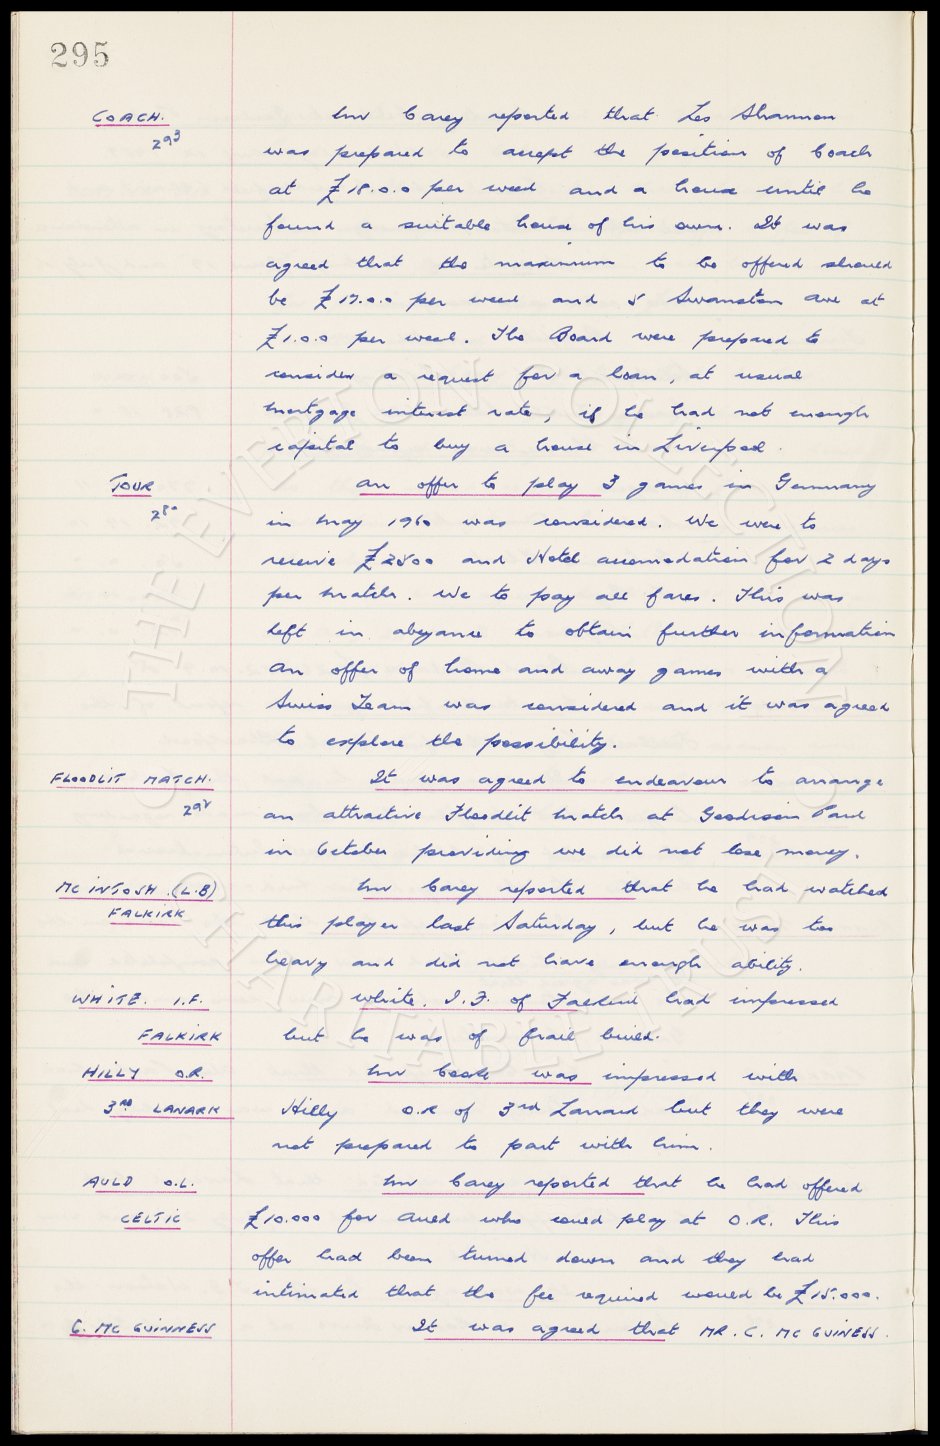 295
COACH. Mr Carey reported that Les Shannon
293 was prepared to accept the position of Coach
at £18.0.0 per week and a house until he
found a suitable house of his own. It was
agreed that the maximum to be offered should
be £17.0.0 per week and 5 Swanston Ave at
£1.0.0 per week. The Board were prepared to
consider a request for a loan, at usual
mortgage interest rate, if he had not enough
capital to buy a house in Liverpool.
TOUR An offer to play 3 games in Germany
280 in May 1960 was considered. We were to
receive £2500 and Hotel accomodation for 2 days
per match. We to pay all fares. This was
left in abeyance to obtain further information
An offer of home and away games with a
Swiss Team was considered and it was agreed
to explore the possibility.
FLOODLIT MATCH. It was agreed to endeavour to arrange
an attractive Floodlit match at Goodison Park
in October providing we did not lose money.
MC INTOSH (L.B) Mr Carey reported that he had watched
FALKIRK this player last Saturday, but he was too
heavy and did not have enough ability.
WHITE. I.F. White. I.F. of Falkirk had impressed
FALKIRK but he was of frail build.
HILLY O.R. Mr Cooke was impressed with
3RD LANARK Hilly O.R of 3rd Lanark but they were
not prepared to part with him.
AULD O.L. Mr Carey reported that he had offered
CELTIC £10.000 for Auld who could play at O.R. This
offer had been turned down and they had
intimated that the fee required would be £15.000.
C. MC GUINNESS It was agreed that MR. C. MC GUINESS.
© THE EVERTON COLLECTION CHARITABLE TRUST